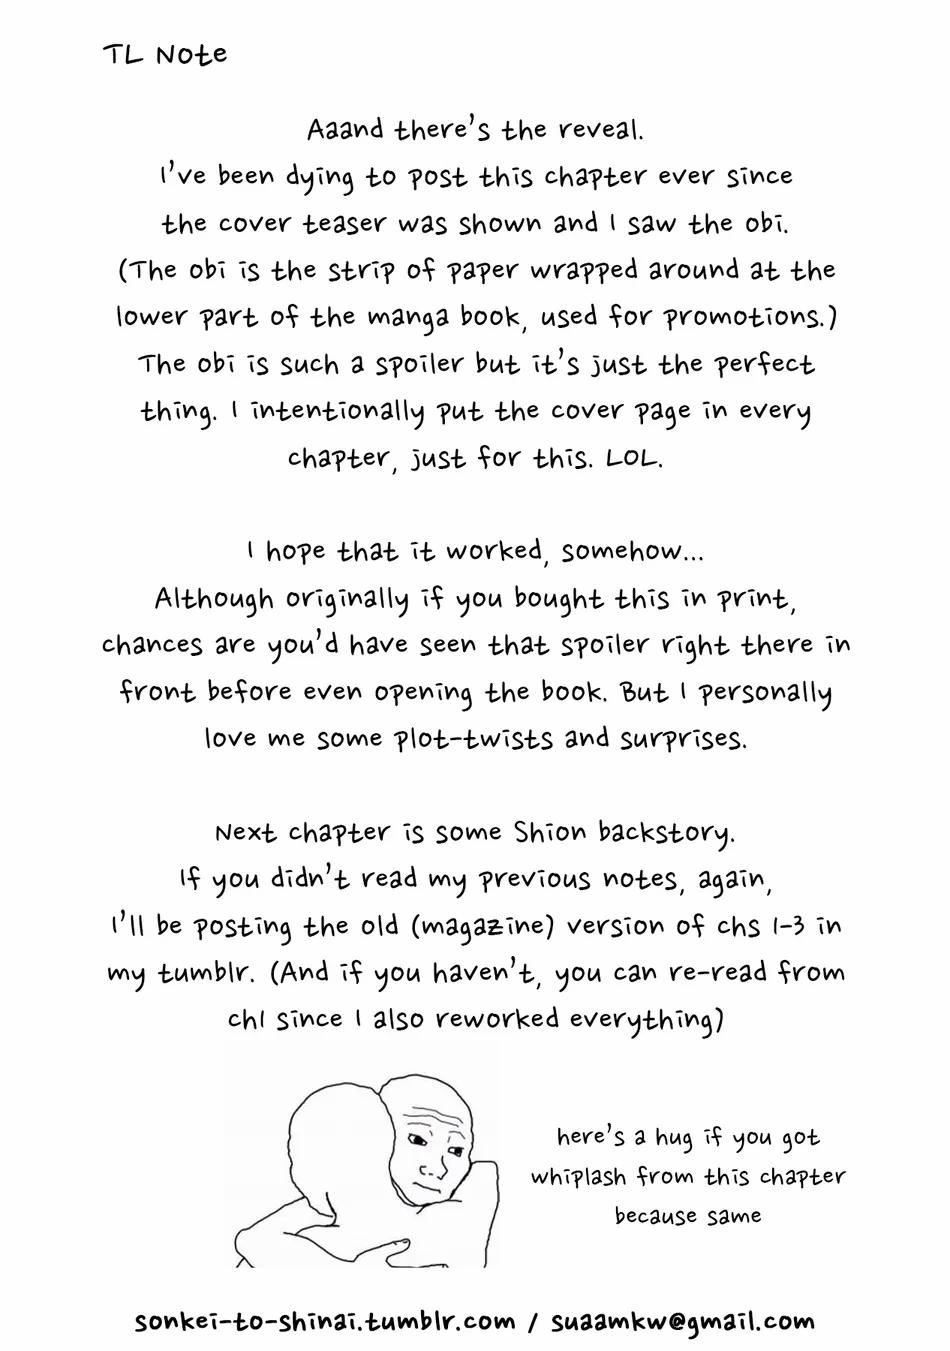 TL Note
Aaand there's the reveal.
I've been dying to post this chapter ever since
the cover teaser was shown and I saw the obi.
(The obi is the strip of paper wrapped around at the
lower part of the manga book, used for promotions.)
The obi is such a spoiler but it's just the perfect
thing. I intentionally put the cover page in every
chapter, just for this. LOL.
I hope that it worked, somehow...
Although originally if you bought this in print,
chances are you'd have seen that spoiler right there in
front before even opening the book. But I personally
love me some plot-twists and surprises.
Next chapter is some Shion backstory.
If you didn't read my previous notes, again,
I'll be posting the old (magazine) version of chs 1-3 in
my tumblr. (And if you haven't, you can re-read from
ch1 since I also reworked everything)
here's a hug if you got
whiplash from this chapter
because same
sonkei-to-shinai.tumblr.com / suaamkw@gmail.com